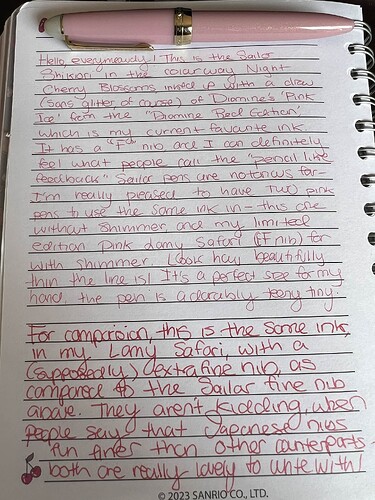 Hello, everymeowdy! This is the Sailor
Shikiori in the colorway Night
Cherry Blossoms inked up with a draw
(sans glitter of course) of Diamine's "Pink
Ice" from the "Diamine Red Edition"
which is my current favourite ink.
It has a "F" nib and I can definitely
feel what people call the "pencil like
feedback" Sailor pens are notorious for-
I'm really pleased to have TWO pink
pens to use the same ink in - this one
without shimmer, and my limited
edition Pink Lamy Safari (EF nib) for
with shimmer. Look how beautifully
thin the line is! It's a perfect size for my
hand, the pen is adorably teeny tiny.
For comparision, this is the same ink,
in my Lamy Safari, with a
(supposedly) extrafine nib, as
compared to the Sailor fine nib
above. They aren't kidding, when
people say that Japanese nibs
run finer than other counterparts -
both are really lovely to write with!
© 2023 SANRIO CO., LTD.